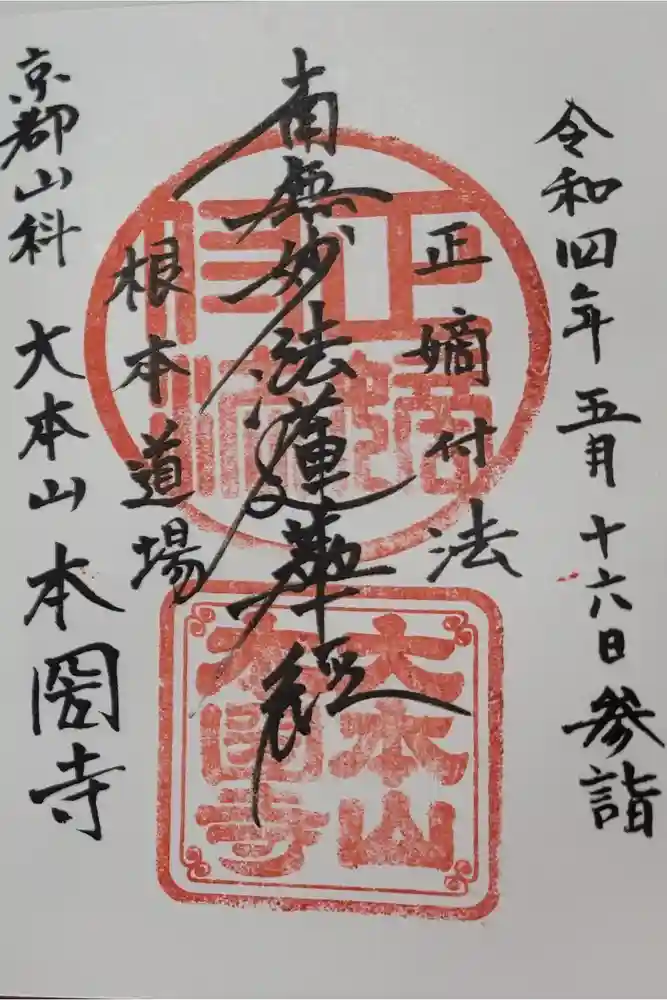 令和四年五月十六日参詣
正嫡付法
南無妙法蓮華経
根本道場
京都山科 大本山 本圀寺
正嫡
付法
大本山
本圀寺